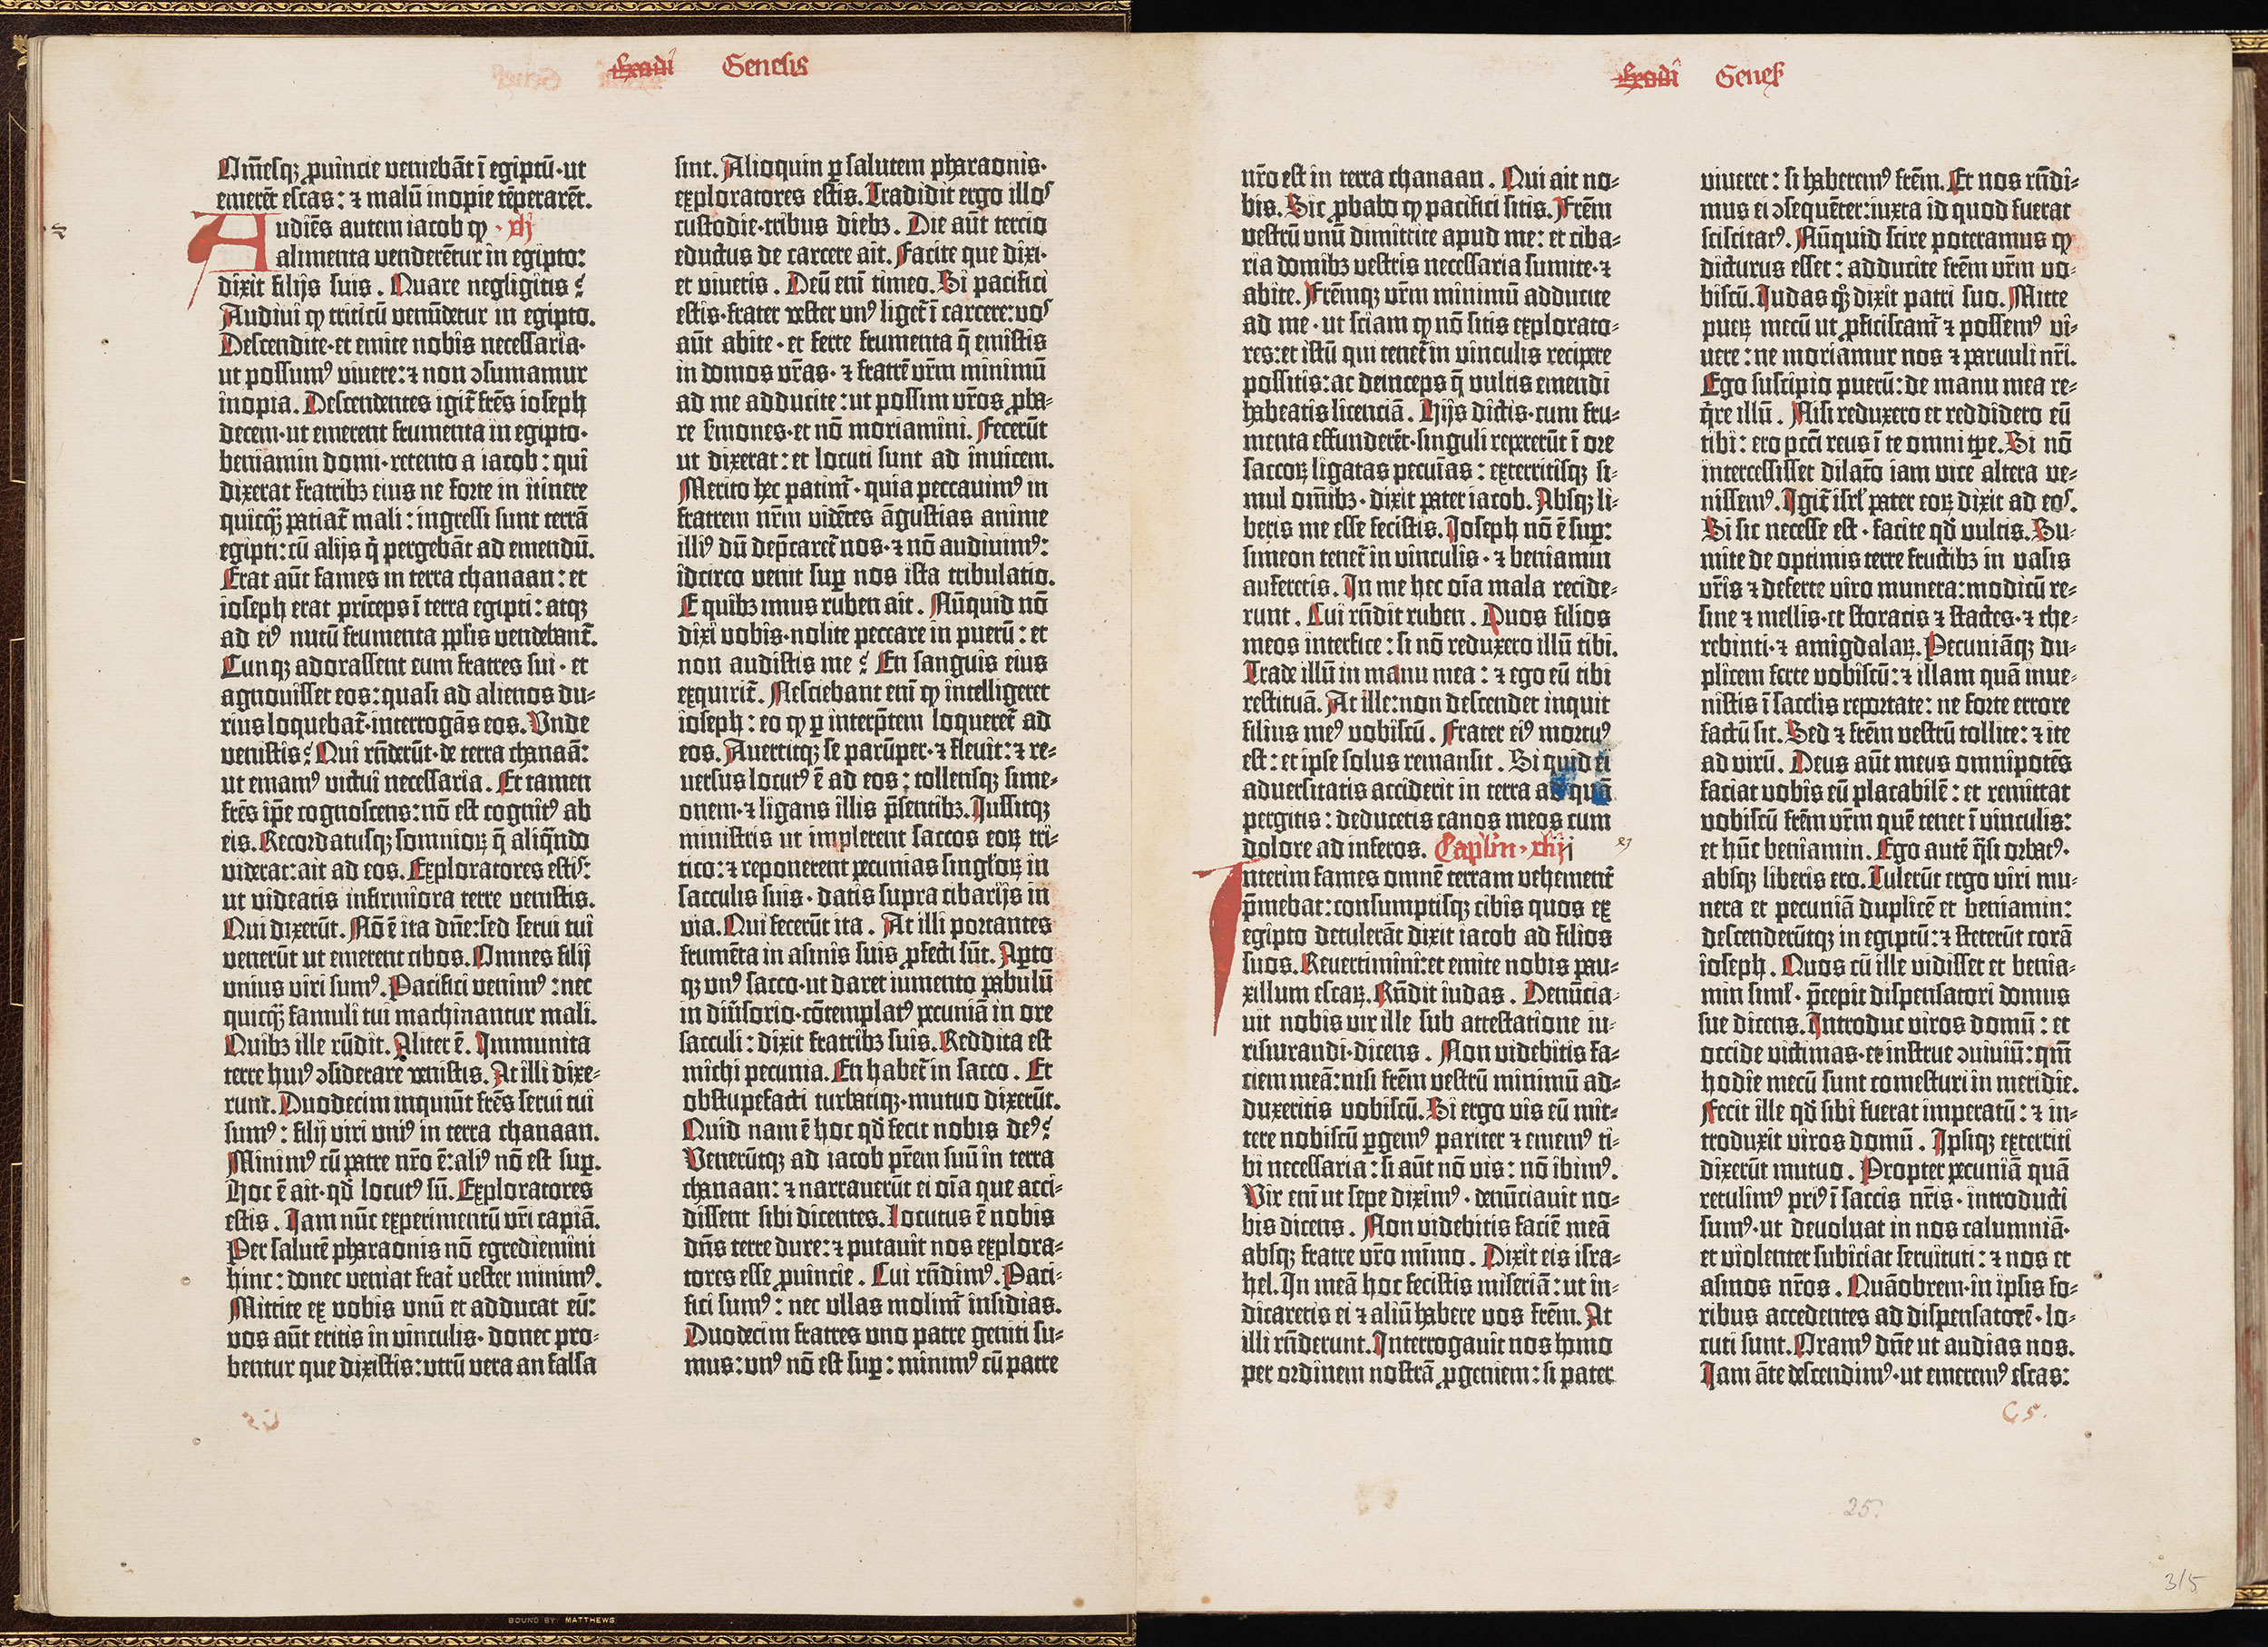 Exodi Genesis
Om̄esqꝫ ꝓuincie veniebāt ī egiptū·ut
emerēt escas: ⁊ malū inopie tēperarēt.
Audiēs autem iacob ꝙ · xlij
alimenta venderētur in egipto:
dixit filijs suis. Quare negligitis?
Audiui ꝙ triticū venūdetur in egipto.
Descendite·et emite nobis necessaria·
ut possumꝰ viuere:⁊ non ↄsumamur
inopia. Descendentes igit᷑ frēs ioseph
decem·ut emerent frumenta in egipto·
beniamin domi·retento a iacob: qui
dixerat fratribꝫ eius ne forte in itinere
quicqꝫ patiat᷑ mali: ingressi sunt terrā
egipti:cū alijs q̇ pergebāt ad emendū.
Erat aūt fames in terra chanaan: et
ioseph erat prīceps ī terra egipti: atqꝫ
ad eiꝰ nutū frumenta ppl̄is vendebant᷑.
Cunqꝫ adorassent eum fratres sui · et
agnouisset eos:quasi ad alienos du-
rius loquebat᷑·interrogās eos. Vnde
venistis? Qui rn̄derūt·de terra chanaā:
ut emamꝰ victui necessaria. Et tamen
frēs ip̄e cognoscens:nō est cognitꝰ ab
eis. Recordatusqꝫ somnioꝝ q̄ aliqn̄do
viderat:ait ad eos. Exploratores estis:
ut videatis infirmiora terre venistis.
Qui dixerūt. Nō ē ita dn̄e:sed serui tui
venerūt ut emerent cibos. Omnes filij
vnius viri sumꝰ. Pacifici venimꝰ:nec
quicqꝫ famuli tui machinantur mali.
Quibꝫ ille rn̄dit. Aliter ē. Immunita
terre huiꝰ ↄsiderare venistis. At illi dixe-
runt. Duodecim inquiūt frēs serui tui
sumꝰ: filij viri vniꝰ in terra chanaan.
Minimꝰ cū patre nr̄o ē:aliꝰ nō est suꝑ.
Hoc ē ait·qd̄ locutꝰ sū. Exploratores
estis. Iam nūc experimentū vr̄i capiā.
Per salutē pharaonis nō egrediemini
hinc: donec veniat frat᷑ vester minimꝰ.
Mittite ex vobis vnū et adducat eū:
vos aūt eritis in vinculis· donec pro-
bentur que dixistis:vtrū vera an falsa
sint. Alioquin ꝑ salutem pharaonis·
exploratores estis. Tradidit ergo illos
custodie·tribus diebꝫ. Die aūt tercio
eductus de carcere ait. Facite que dixi·
et viuetis. Deū eni timeo. Si pacifici
estis·frater vester vnꝰ liget᷑ ī carcere:vos
aūt abite·et ferte frumenta q̄ emistis
in domos vr̄as·⁊ fratrē vr̄m minimū
ad me adducite:ut possim vr̄os ꝓba-
re s̄mones·et nō moriamini. Fecerūt
ut dixerat: et locuti sunt ad inuicem.
Merito hec patimur· quia peccauimꝰ in
fratrem nr̄m vidētes āgustias anime
illiꝰ dū dep̄caret᷑ nos·⁊ nō audiuimꝰ:
idcirco venit suꝑ nos ista tribulatio.
E quibꝫ unus ruben ait. Nūquid nō
dixi vobis·nolite peccare in puerū: et
non audistis me? En sanguis eius
exquirit᷑. Nesciebant eni ꝙ intelligeret
ioseph: eo ꝙ ꝑ interp̄tem loqueret᷑ ad
eos. Auertitqꝫ se parūper·⁊ fleuit:⁊ re-
uersus locutꝰ ē ad eos: tollensqꝫ sime-
onem·⁊ ligans illis p̄sentibꝫ. Iussitqꝫ
ministris ut implerent saccos eoꝝ tri-
tico:⁊ reponerent pecunias singl̄oꝝ in
sacculis suis·datis supra cibarijs in
via. Qui fecerūt ita. At illi portantes
frumēta in asinis suis ꝓfecti sūt. Aꝑto
qꝫ vnꝰ sacco·ut daret iumento pabulū
in diu̇sorio·cōtemplatꝰ pecuniā in ore
sacculi: dixit fratribꝫ suis. Reddita est
michi pecunia. En habet᷑ in sacco. Et
obstupefacti turbatiqꝫ·mutuo dixerūt.
Quid nam ē hoc qd̄ fecit nobis deꝰ?
Venerūtqꝫ ad iacob pr̄em suū in terra
chanaan:⁊ narrauerūt ei oīa que acci-
dissent sibi dicentes. Locutus ē nobis
dn̄s terre dure:⁊ putauit nos explora-
tores esse ꝓuincie. Cui rn̄dimꝰ. Paci-
fici sumꝰ: nec vllas molim᷑ insidias.
Duodecim fratres uno patre geniti su-
mus:vnꝰ nō est suꝑ: minimꝰ cū patre
Exodi Genes̄
nr̄o est in terra chanaan. Qui ait no-
bis. Sic ꝓbabo ꝙ pacifici sitis. Frēm
vestrū vnū dimittite apud me: et ciba-
ria domibꝫ vestris necessaria sumite·⁊
abite. Frēmqꝫ vr̄m minimū adducite
ad me·ut sciam ꝙ nō sitis explorato-
res:et istū qui tenet᷑ in vinculis recipere
possitis:ac deinceps q̄ vultis emendi
habeatis licenciā. Hijs dictis·cum fru-
menta effunderēt·singuli reꝑerūt ī ore
saccoꝝ ligatas pecuīas: exterritisqꝫ si-
mul om̄ibꝫ·dixit pater iacob. Absqꝫ li-
beris me esse fecistis. Ioseph nō ē suꝑ:
simeon tenet᷑ in vinculis·⁊ beniamin
auferetis. In me hec oīa mala recide-
runt. Cui rn̄dit ruben. Duos filios
meos interfice: si nō reduxero illū tibi.
Trade illū in manu mea: ⁊ ego eū tibi
restituā. At ille:non descendet inquit
filius meꝰ vobiscū. Frater eiꝰ mortuꝰ
est: et ipse solus remansit. Si quid ei
aduersitatis acciderit in terra ad quā
pergitis: deducetis canos meos cum
dolore ad inferos. Capl̄m·xliij
Interim fames omnē terram vehement᷑
p̄mebat:consumptisqꝫ cibis quos ex
egipto detulerāt dixit iacob ad filios
suos. Reuertimini:et emite nobis pau-
xillum escaꝝ. Rn̄dit iudas. Denūcia-
uit nobis vir ille sub attestatione iu-
risiurandi·dicens. Non videbitis fa-
ciem meā:nisi frēm vestrū minimū ad-
duxeritis vobiscū. Si ergo vis eū mit-
tere nobiscū ꝑgemꝰ pariter ⁊ ememꝰ ti-
bi necessaria: si aūt nō vis: nō ibimꝰ.
Vir eni ut sepe diximꝰ·denūciauit no-
bis dicens. Non videbitis faciē meā
absqꝫ fratre vr̄o mīmo. Dixit eis isra-
hel. In meā hoc fecistis miseriā: ut in-
dicaretis ei ⁊ aliū habere vos frēm. At
illi rn̄derunt. Interrogauit nos homo
per ordinem nostrā ꝓgeniem: si pater
viueret: si haberemꝰ frēm. Et nos rn̄di-
mus ei ↄsequēter:iuxta id quod fuerat
sciscitatꝰ. Nūquid scire poteramus ꝙ
dicturus esset: adducite frēm vr̄m vo-
biscū. Iudas qꝫ dixit patri suo. Mitte
pueꝝ mecū ut ꝓficiscam᷑ ⁊ possemꝰ vi-
uere: ne moriamur nos ⁊ paruuli nr̄i.
Ego suscipio puerū: de manu mea re-
q̇re illū. Nisi reduxero et reddidero eū
tibi: ero pcc̄i reus ī te omni tꝑe. Si nō
intercessisset dilatō iam vice altera ve-
nissemꝰ. Igit᷑ isrl̄ pater eoꝝ dixit ad eos.
Si sic necesse est·facite qd̄ vultis. Su-
mite de optimis terre fructibꝫ in vasis
vr̄is ⁊ deferte viro munera:modicū re-
sine ⁊ mellis·et storacis ⁊ stactes·⁊ the-
rebinti·⁊ amigdalaꝝ. Pecuniāqꝫ du-
plicem ferte vobiscū:⁊ illam quā inue-
nistis ī sacclis reportate: ne forte errore
factū sit. Sed ⁊ frēm vestrū tollite:⁊ ite
ad virū. Deus aūt meus omnipotēs
faciat vobis eū placabilē: et remittat
vobiscū frēm vr̄m quē tenet ī vinculis:
et hūc beniamin. Ego autē q̄si orbatꝰ·
absqꝫ liberis ero. Tulerūt ergo viri mu-
nera et pecuniā duplicē et beniamin:
descenderūtqꝫ in egiptū:⁊ steterūt corā
ioseph. Quos cū ille vidisset et benia-
min siml̄·p̄cepit dispensatori domus
sue dicens. Introduc viros domū: et
occide victimas·et instrue ↄuiuiū:qm̄
hodie mecū sunt comesturi in meridie.
Fecit ille qd̄ sibi fuerat imperatū:⁊ in-
troduxit viros domū. Ipsiqꝫ exterriti
dixerūt mutuo. Propter pecuniā quā
retulimꝰ priꝰ ī saccis nr̄is·introducti
sumꝰ·ut deuoluat in nos calumniā·
et violenter subiciat seruituti:⁊ nos et
asinos nr̄os. Quāobrem·in ipsis fo-
ribus accedentes ad dispensatorē·lo-
cuti sunt. Oramꝰ dn̄e ut audias nos.
Iam āte descendimꝰ·ut emeremꝰ escas:
C 5.
25.
3/5
BOUND BY MATTHEWS